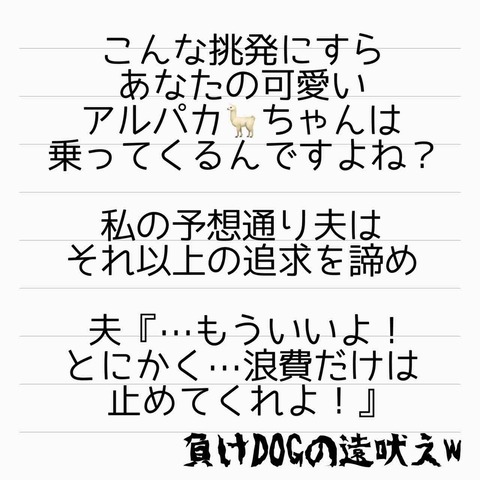 こんな挑発にすら
あなたの可愛い
アルパカ🦙ちゃんは
乗ってくるんですよね？
私の予想通り夫は
それ以上の追求を諦め
夫『…もういいよ！
とにかく…浪費だけは
止めてくれよ！』
負けDOGの遠吠えw